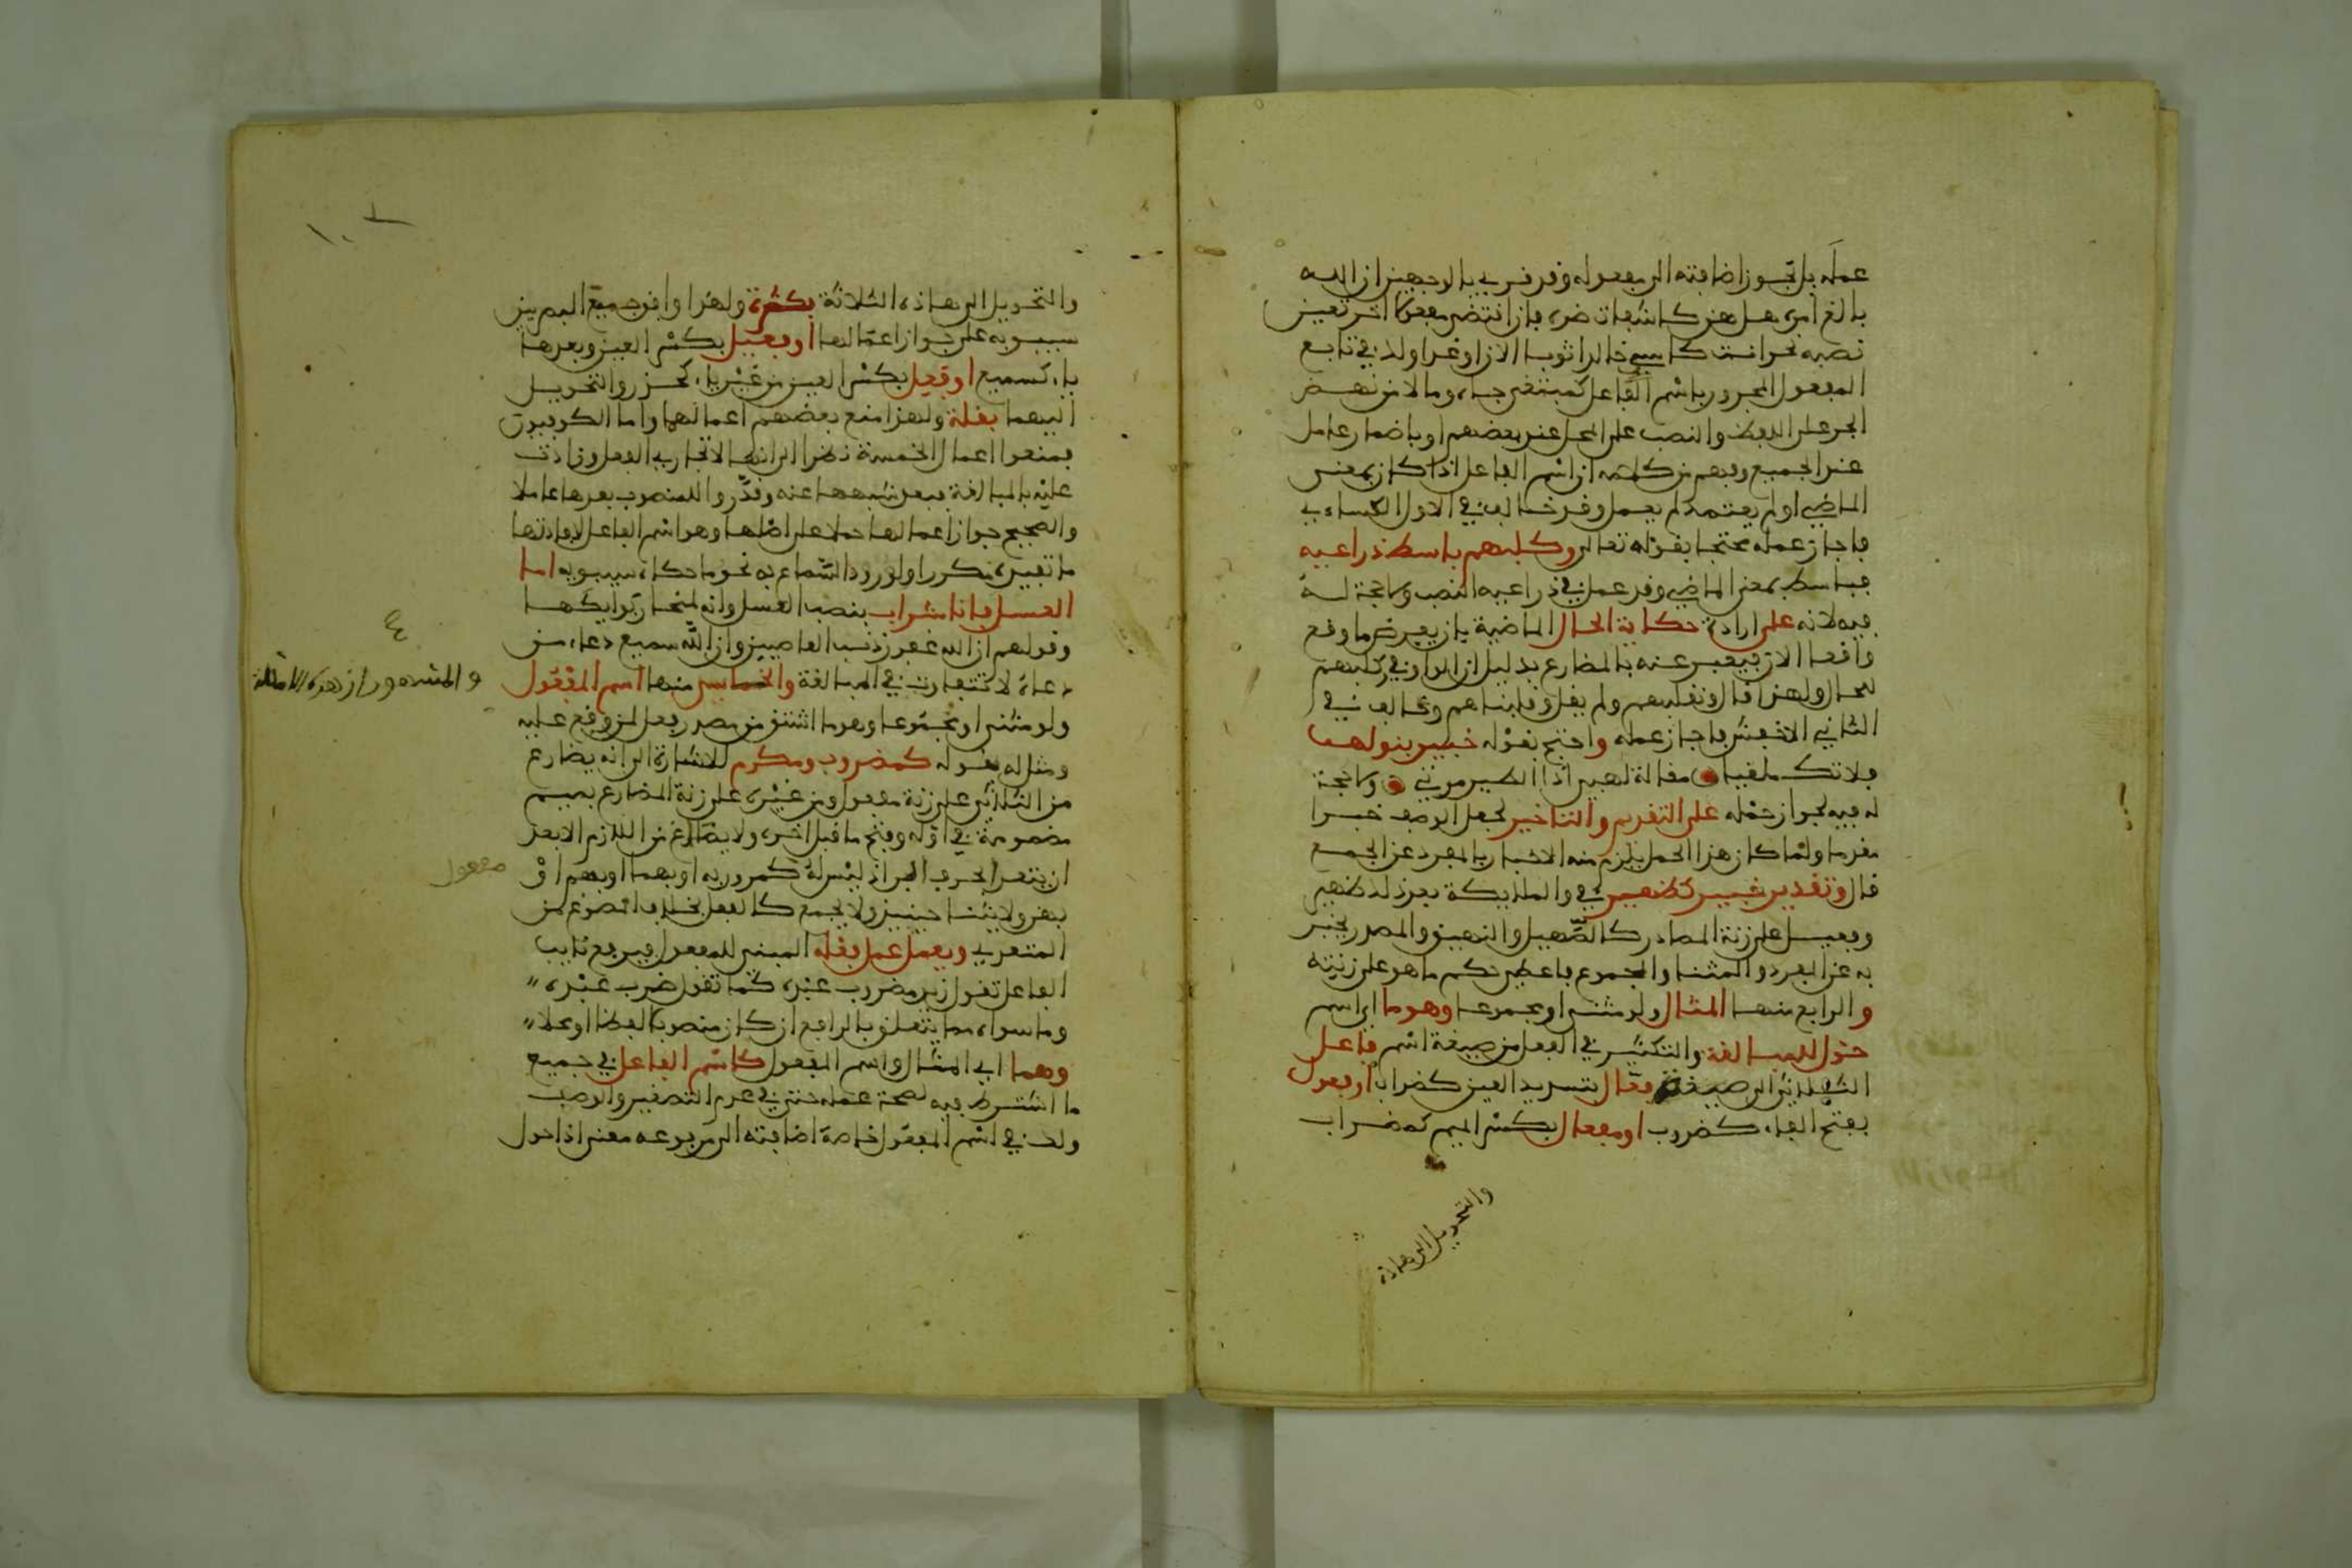 عمله بل تجوز اضافته الى مفعوله وقد قرئ بالوجهين ان الله
بالغ امره هل هن كاشفات ضره فان اقتضى مفعولا اخر تعين
نصبه نحو انت كاسي خالد اثوبا الان او غدا ولك في تابع
المفعول المجرور باسم الفاعل كمبتغي جاه ومالا من نهض
الجر على اللفظ والنصب على المحل عند بعضهم او باضمار عامل
عند الجميع وفهم من كلامه ان اسم الفاعل اذا كان بمعنى
الماضي او لم يعتمد لم يعمل وقد خالف في الاول الكساءي
فاجاز عمله محتجا بقوله تعالى وكلبهم باسط ذراعيه
فباسط بمعنى الماضي وقد عمل في ذراعيه النصب ولا حجة له
فيه لانه على ارادة حكاية الحال الماضية بان يفرض ما وقع
واقعا الان فيعبر عنه بالمضارع بدليل ان الواو في وكلبهم
للحال ولهذا قال ونقلبهم ولم يقل وقلبناهم وخالف في
الثاني الاخفش فاجاز عمله واحتج بقوله خبير بنو لهب
فلا تك ملغيا مقالة لهبي اذا الطير مرت ولا حجة
له فيه لجواز حمله على التقديم والتاخير لجعل الوصف خبرا
مقدما ولما كان هذا الحمل يلزم منه الاخبار بالمفرد عن الجمع
قال وتقدير خبير كظهير في والملايكة بعد ذلك ظهير
وفعيل على زنة المصادر كالصهيل والنهيق والمصدر يخبر
به عن المفرد والمثنا والمجموع فاعطي حكم ما هو على زنته
والرابع منها المثال ولو مثنى او مجموعا وهو ما اي اسم
حول للمبالغة والتكثير في الفعل من صيغة اسم فاعل
الثلاثي الى صيغة فعال بتشديد العين كضراب او فعول
بفتح الفاء كضروب او مفعال بكسر الميم كمضراب
والتحويل الى هاذه
والتحويل الى هاذه الثلاثة بكثرة ولهذا وافق جميع البصريين
سيبويه على جواز اعمالها او فعيل بكسر العين وبعدها
ياء كسميع او فعل بكسر العين من غير ياء كحذر والتحويل
اليهما بقلة ولهذا منع بعضهم اعمالهما واما الكوفيون
فمنعوا اعمال الخمسة نظرا الى انها لا تجاري الفعل وزادت
عليه بالمبالغة فبعد شبهها عنه وقدروا للمنصوب بعدها عاملا
والصحيح جواز اعمالها حملا على اصلها وهو اسم الفاعل لافادتها
ما تفيده مكررا ولورود السماع به نحو ما حكاه سيبويه اما
العسل فانا شراب بنصب العسل وانه لمنحار بوايكها
وقولهم ان الله غفور ذنب العاصيين وان الله سميع دعاء من
دعاه لا تتفاوت في المبالغة والخامس منها اسم المفعول
والمشهور ان هذه الامثلة
ولو مثنى او مجموعا وهو ما اشتق من مصدر فعل لمن وقع عليه
ومثل له بقوله كمضروب ومكرم للاشارة الى انه يضارع
من الثلاثي على زنة مفعول ومن غيره على زنة المضارع بميم
مضمومة في اوله وفتح ما قبل اخره ولا يصاغ من اللازم الا بعد
ان يتعد بحرف الجر اذ ليس له كمرور به او بهما او بهم او
مفعول
بهن ولا يثنا حينيذ ولا يجمع كالفعل بخلاف المصوغ من
المتعدي ويعمل عمل فعله المبني للمفعول فيرفع نايب
الفاعل تقول زيد مضروب عبده كما تقول ضرب عبده
وما سواه مما يتعلق بالرافع ان كان منصوبا لفظا او محلا
وهما اي المثال واسم المفعول كاسم الفاعل في جميع
ما اشترط فيه لصحة عمله حتى في عدم التصغير والوصف
ولك في اسم المفعول خاصة اضافته الى مرفوعه معنى اذا حول